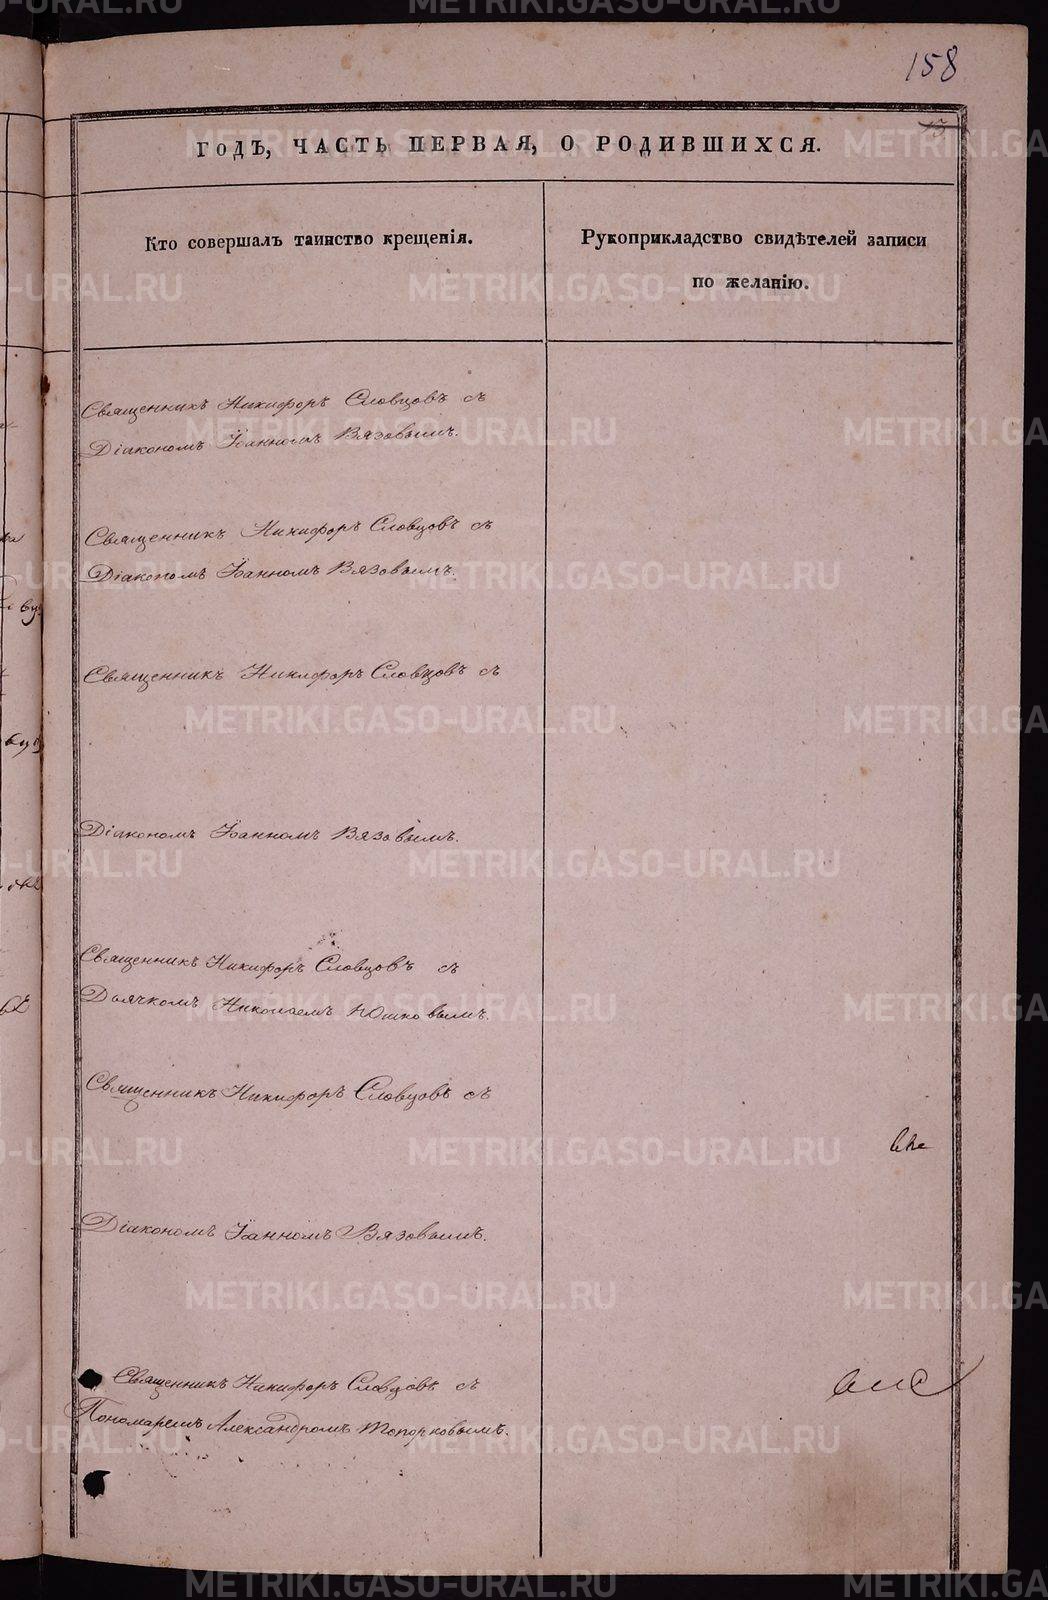 158
13
ГОДЪ, ЧАСТЬ ПЕРВАЯ, О РОДИВШИХСЯ.
Кто совершалъ таинство крещенія.
Рукоприкладство свидѣтелей записи
по желанію.
Священникъ Никифоръ Словцовъ съ
Діакономъ Іоанномъ Вязовымъ.
Священникъ Никифоръ Словцовъ съ
Діакономъ Іоанномъ Вязовымъ.
Священникъ Никифоръ Словцовъ съ
Діакономъ Іоанномъ Вязовымъ.
Священникъ Никифоръ Словцовъ съ
Дьячкомъ Николаемъ Юшковымъ.
Священникъ Никифоръ Словцовъ съ
Діакономъ Іоанномъ Вязовымъ.
Священникъ Никифоръ Словцовъ съ
Пономаремъ Александромъ Топорковымъ.
METRIKI.GASO-URAL.RU